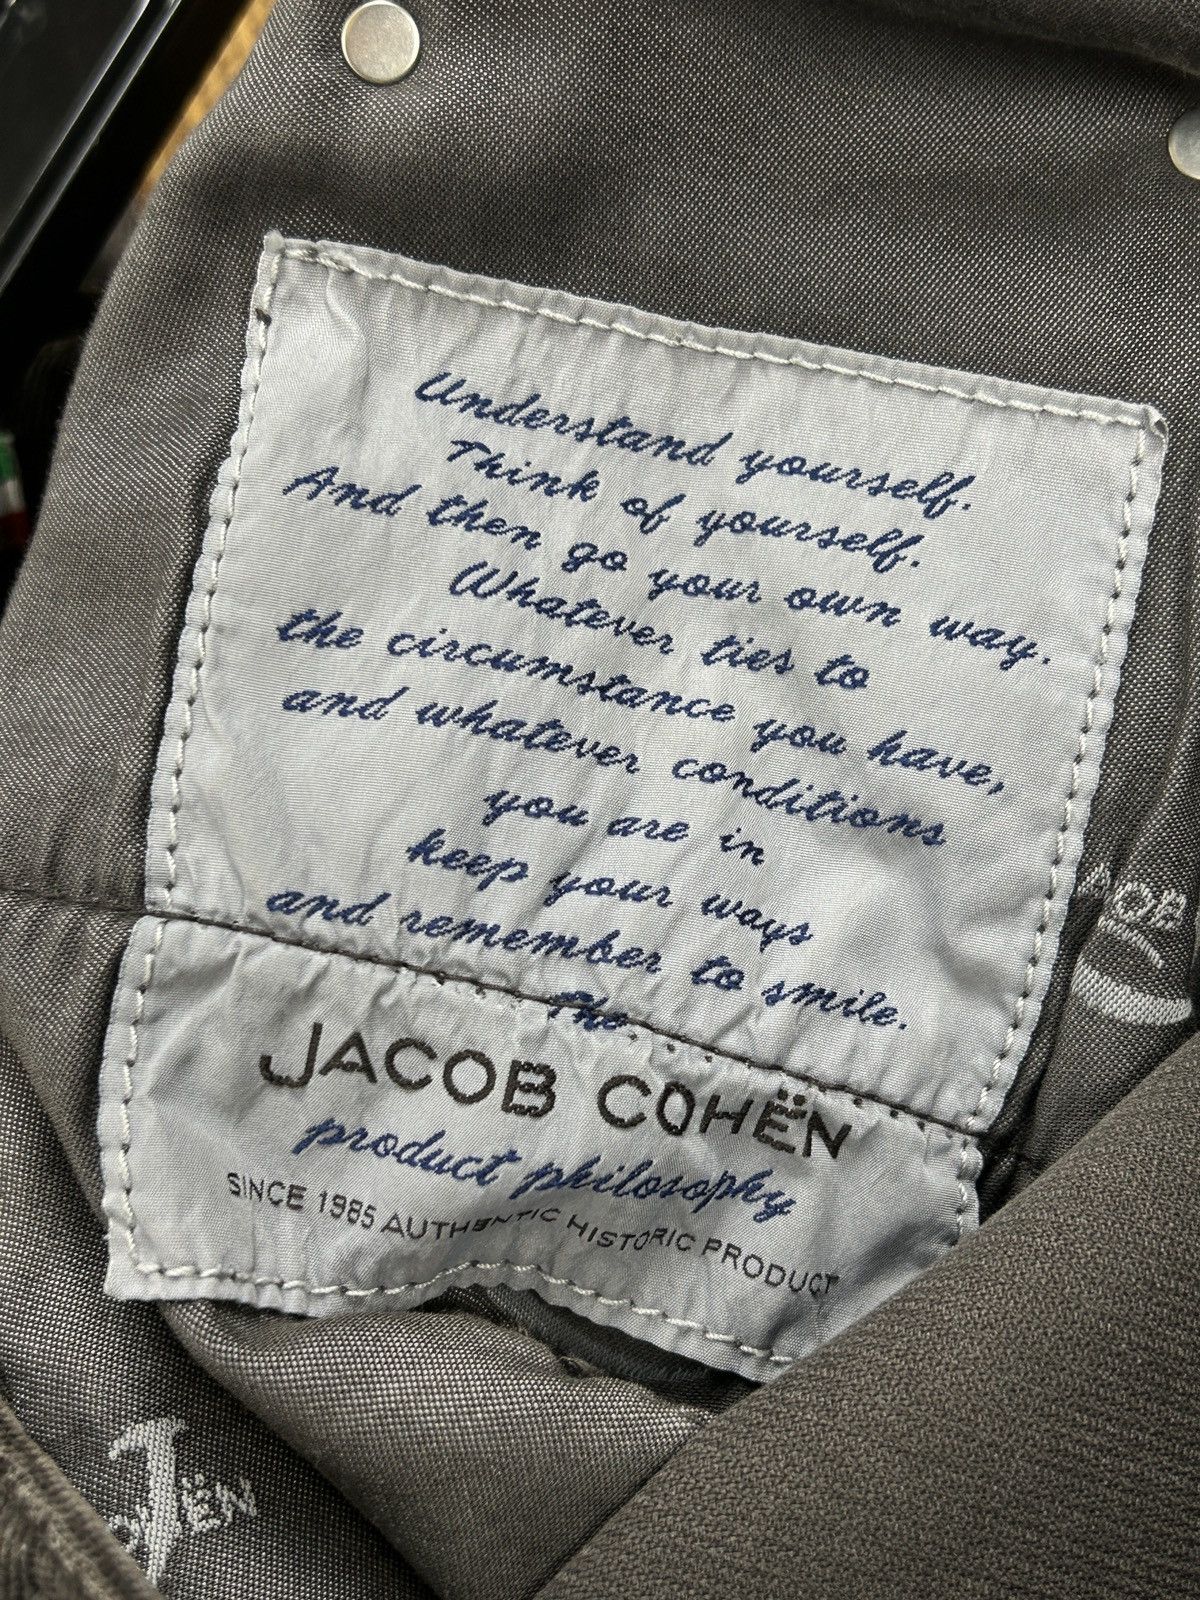 Understand yourself.
Think of yourself.
And then go your own way.
Whatever ties to
the circumstance you have,
and whatever conditions
you are in
keep your ways
and remember to smile.
The
JACOB COHËN
product philosophy
SINCE 1985 AUTHENTIC HISTORIC PRODUCT